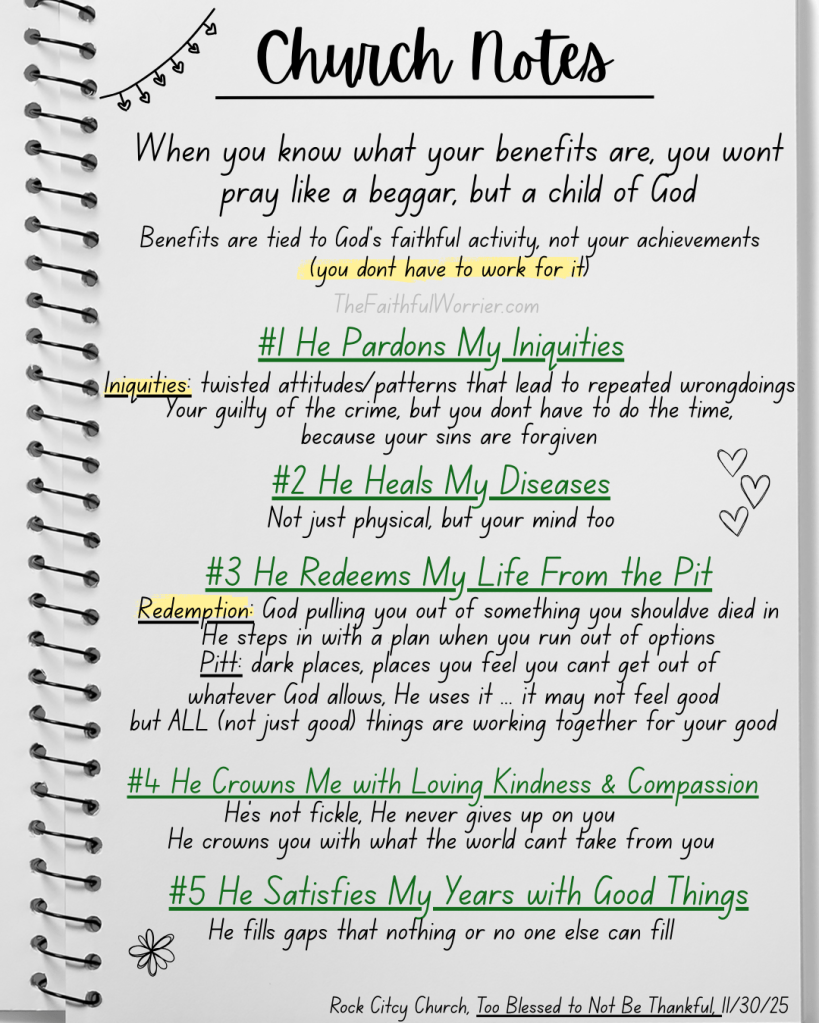 Church Notes
When you know what your benefits are, you wont
pray like a beggar, but a child of God
Benefits are tied to God's faithful activity, not your achievements
(you dont have to work for it)
TheFaithfulWorrier.com
#1 He Pardons My Iniquities
Iniquities: twisted attitudes/patterns that lead to repeated wrongdoings
Your guilty of the crime, but you dont have to do the time,
because your sins are forgiven
#2 He Heals My Diseases
Not just physical, but your mind too
#3 He Redeems My Life From the Pit
Redemption: God pulling you out of something you shouldve died in
He steps in with a plan when you run out of options
Pitt: dark places, places you feel you cant get out of
whatever God allows, He uses it ... it may not feel good
but ALL (not just good) things are working together for your good
#4 He Crowns Me with Loving Kindness & Compassion
He's not fickle, He never gives up on you
He crowns you with what the world cant take from you
#5 He Satisfies My Years with Good Things
He fills gaps that nothing or no one else can fill
Rock Citcy Church, Too Blessed to Not Be Thankful, 11/30/25